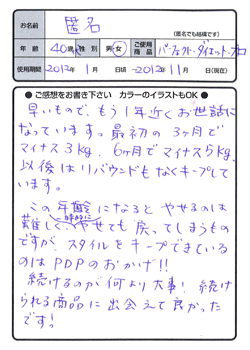 お名前 匿名
(匿名でも結構です)
年齢 40歳 性別 男・女 ご使用商品 パーフェクト・ダイエット・プロ
使用期間 2012年1月 日頃~2012年11月 日(現在)
●ご感想をお書き下さい カラーのイラストもOK●
早いもので、もう1年近くお世話に
なっています。最初の3ヶ月で
マイナス3kg、6ヶ月でマイナス5kg、
以後はリバウンドもなくキープして
います。
この年齢になるとやせるのは
難しく、一時的にやせても戻ってしまうもの
ですが、スタイルをキープできている
のはPDPのおかげ!!
続けるのが何より大事!続け
られる商品に出会えて良かった
です!